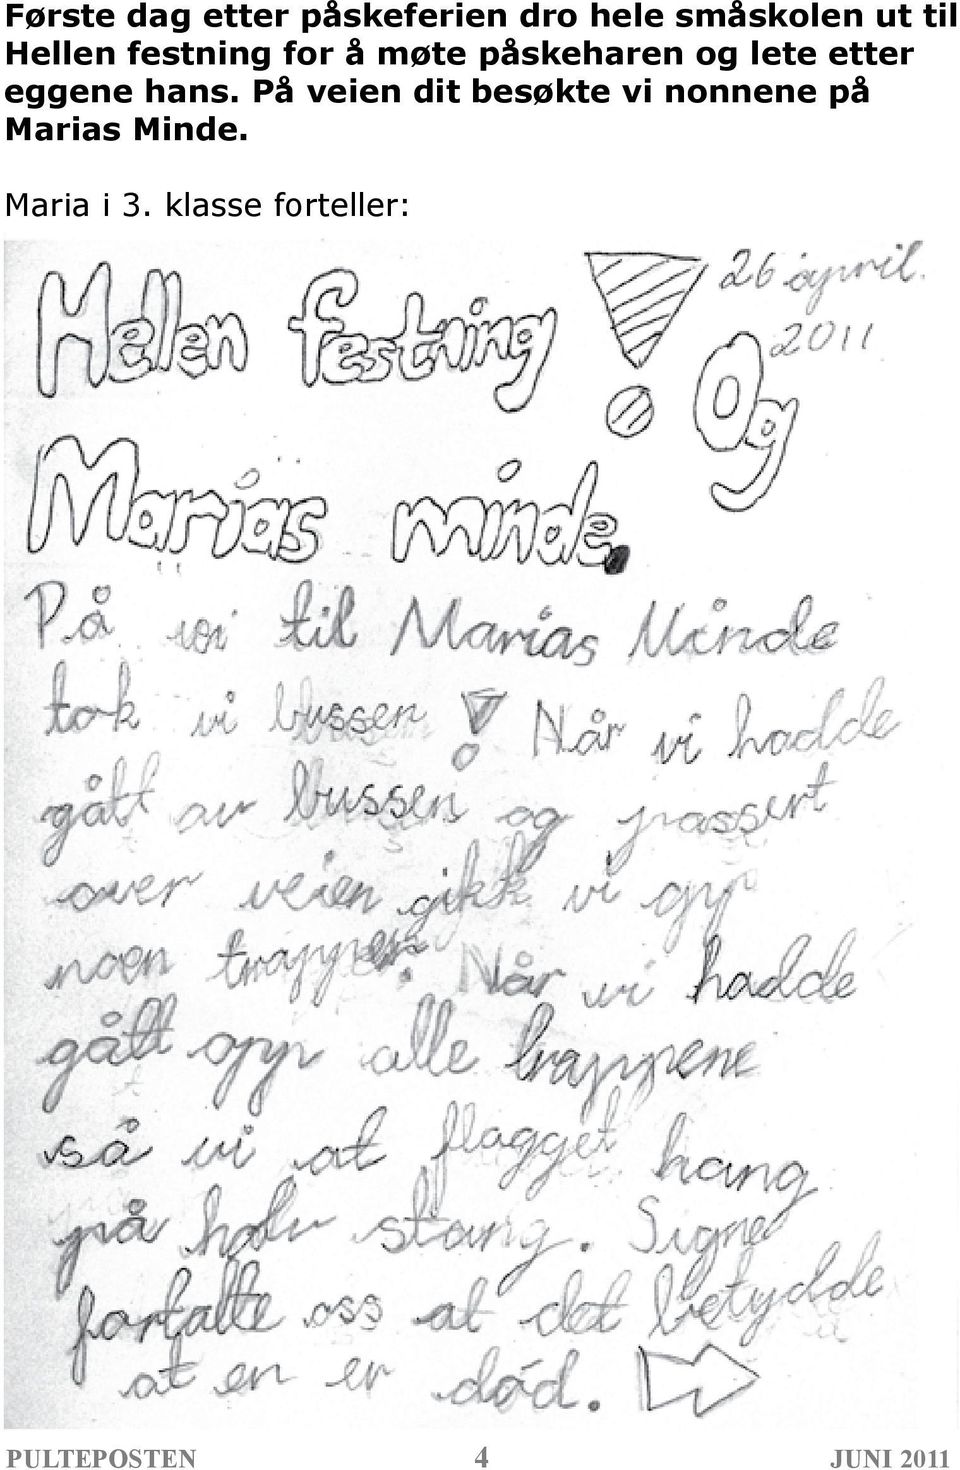 Første dag etter påskeferien dro hele småskolen ut til
Hellen festning for å møte påskeharen og lete etter
eggene hans. På veien dit besøkte vi nonnene på
Marias Minde.
Maria i 3. klasse forteller:
26 april.
2011
Hellen festning! Og
Marias minde.
På vei til Marias Minde
tok vi bussen! Når vi hadde
gått av bussen og passert
over veien gikk vi opp
noen trapper. Når vi hadde
gått opp alle trappene
så vi at flagget hang
på halv stang. Signe
fortalte oss at det betydde
at en er død.
PULTEPOSTEN 4 JUNI 2011